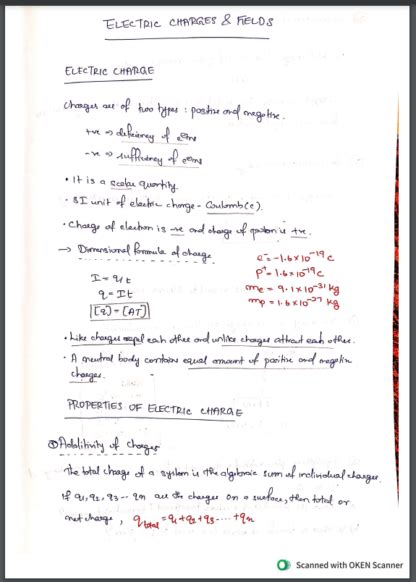 ELECTRIC CHARGES & FIELDS
ELECTRIC CHARGE
Charges are of two types : positive and negative.
+ve => deficiency of e⊖ns
-ve => sufficiency of e⊖ns
• It is a scalar quantity.
• SI unit of electric charge - Coulomb(c).
• Charge of electron is -ve and charge of proton is +ve.
→ Dimensional formula of charge
e⁻ = -1.6×10⁻¹⁹ C
P⁺ = 1.6×10⁻¹⁹ C
me = 9.1×10⁻³¹ kg
mp = 1.6×10⁻²⁷ kg
I = q/t
q = It
[q] = [AT]
• Like charges repel each other and unlike charges attract each other.
• A neutral body contains equal amount of positive and negative
charges.
PROPERTIES OF ELECTRIC CHARGE
① Additivity of charges
The total charge of a system is the algebraic sum of individual charges.
If q1, q2, q3 -- qn are the charges on a surface, then total or
net charge, q total = q1+q2+q3.....+qn
Scanned with OKEN Scanner